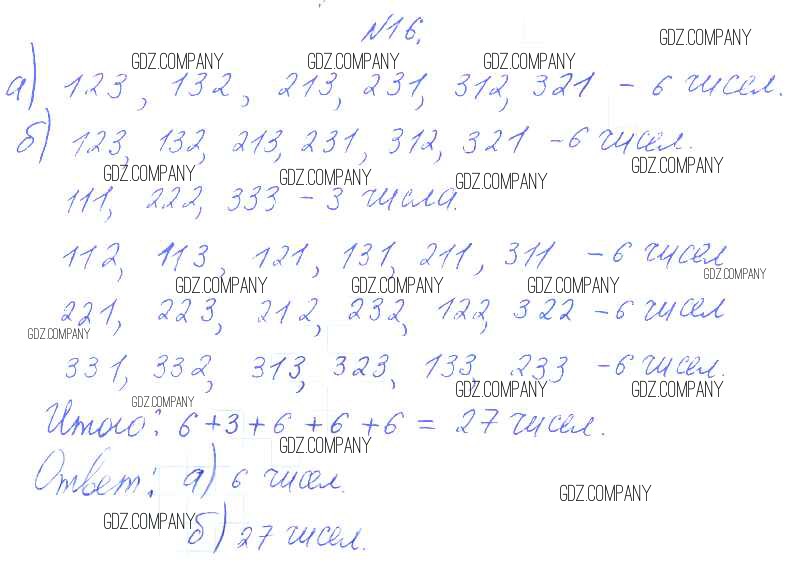 №16.
GDZ.COMPANY
GDZ.COMPANY GDZ.COMPANY GDZ.COMPANY
а) 123, 132, 213, 231, 312, 321 – 6 чисел.
б) 123, 132, 213, 231, 312, 321 – 6 чисел.
GDZ.COMPANY GDZ.COMPANY GDZ.COMPANY GDZ.COMPANY
111, 222, 333 – 3 числа.
112, 113, 121, 131, 211, 311 – 6 чисел
GDZ.COMPANY GDZ.COMPANY GDZ.COMPANY GDZ.COMPANY
221, 223, 212, 232, 122, 322 – 6 чисел
GDZ.COMPANY
331, 332, 313, 323, 133, 233 – 6 чисел.
GDZ.COMPANY GDZ.COMPANY GDZ.COMPANY
Итого: 6 + 3 + 6 + 6 + 6 = 27 чисел.
GDZ.COMPANY
Ответ: а) 6 чисел.
GDZ.COMPANY
GDZ.COMPANY
б) 27 чисел.